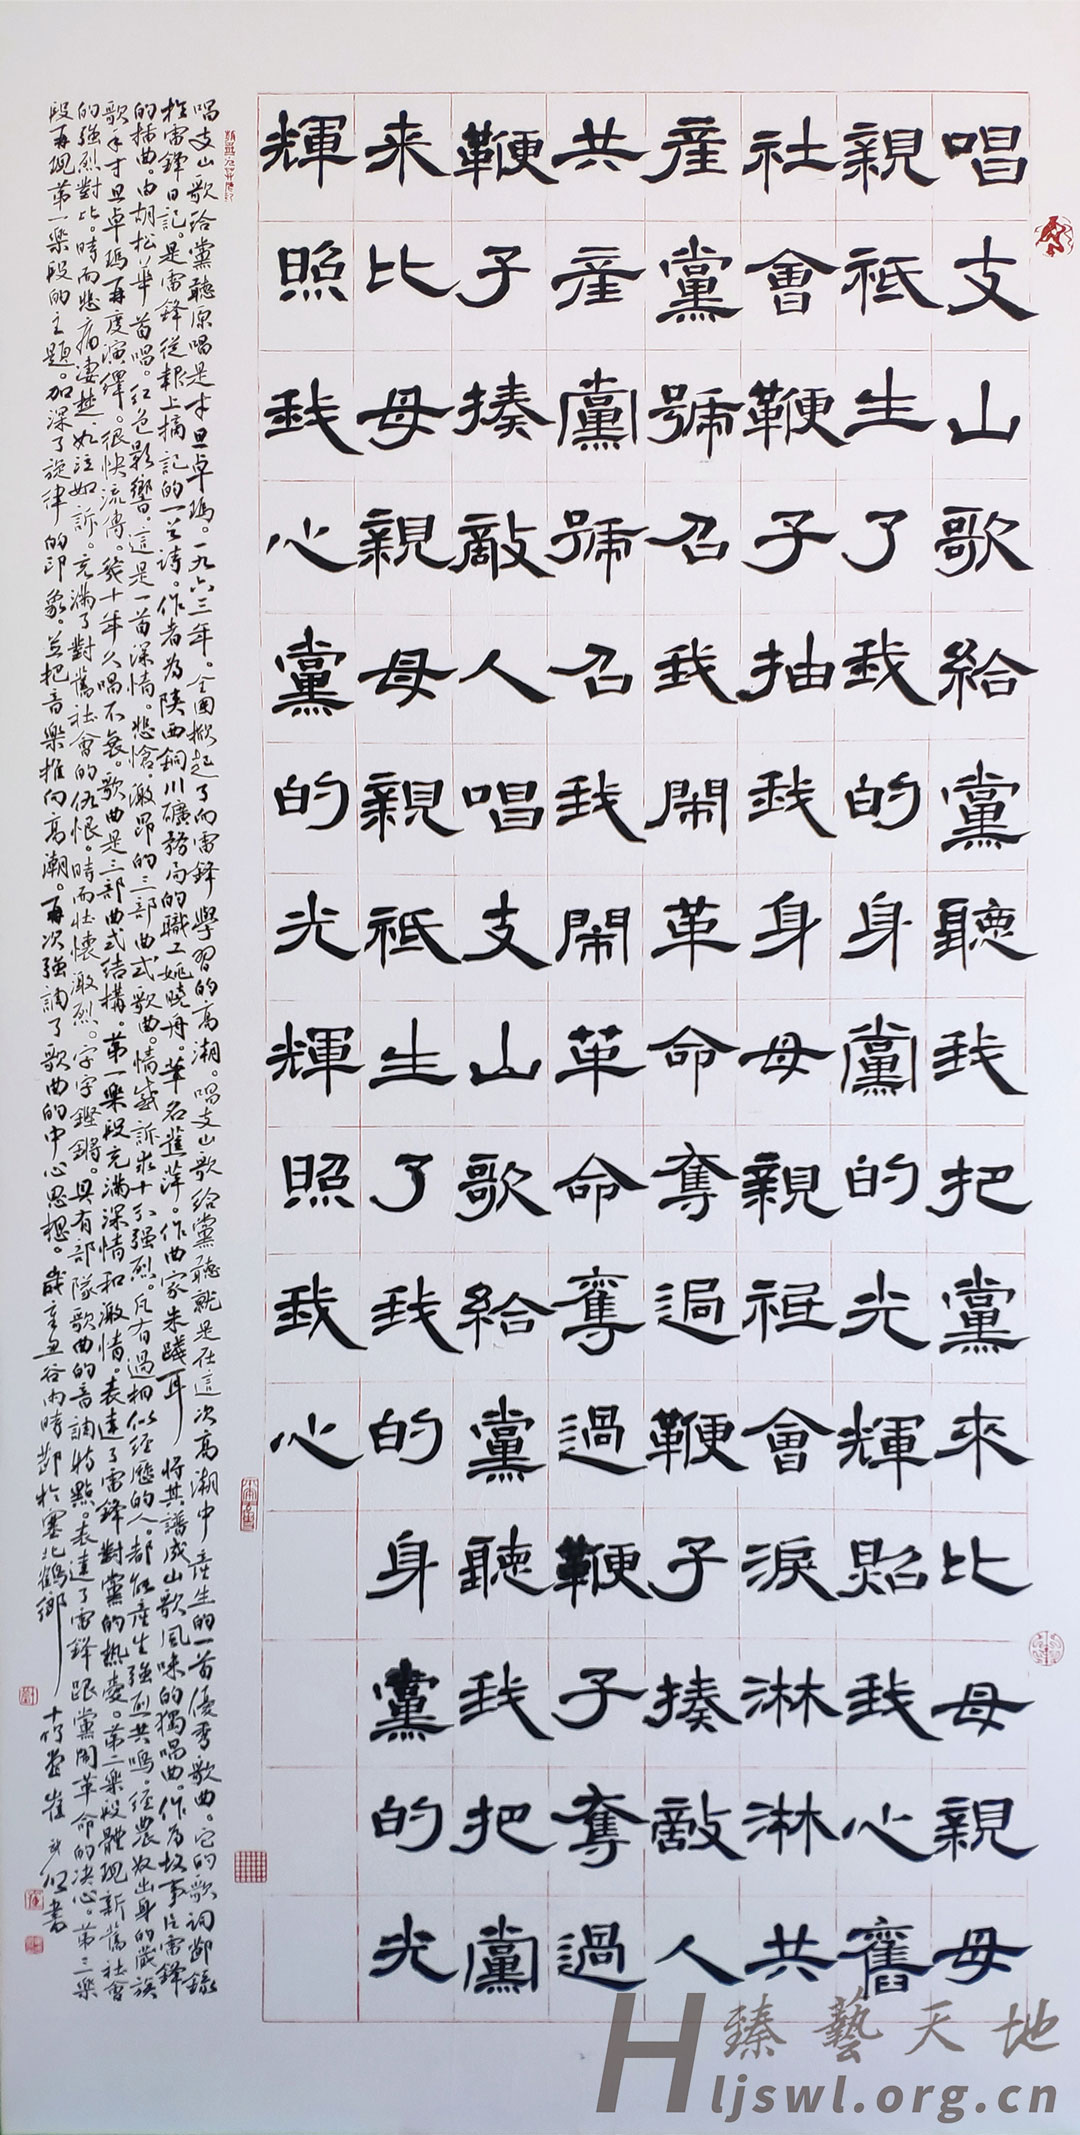 唱支山歌給黨聽我把黨來比母親母
親祇生了我的身黨的光輝照我心舊
社會鞭子抽我身母親祇會淚淋淋共
産黨號召我鬧革命奪過鞭子揍敵人
共産黨號召我鬧革命奪過鞭子奪過
鞭子揍敵人唱支山歌給黨聽我把黨
来比母親母親祇生了我的身黨的光
輝照我心黨的光輝照我心
唱支山歌給黨聽原唱是才旦卓瑪。一九六三年。全國掀起了向雷鋒學習的高潮。唱支山歌給黨聽就是在這次高潮中産生的一首優秀歌曲。它的歌詞錄
於雷鋒日記。是雷鋒從報上摘記的一首詩。作者為陝西銅川礦務局的職工姚曉舟。筆名蕉萍。作曲家朱踐耳將其譜成山歌風味的獨唱曲。作為故事片雷鋒
的插曲。由胡松華首唱。红色影響。這是一首深情。悲愴。激昂的三部曲式歌曲。情感訴求十分强烈。凡有過相似經歷的人。都能産生強烈共鳴。經農奴出身的藏族
歌手才旦卓瑪再度演繹。很快流傳。幾十年久唱不衰。歌曲是三部曲式結構。第一樂段充滿深情和激情。表達了雷鋒對黨的熱愛。第二樂段體現新舊社會
的強烈對比。時而悲痛凄楚。如泣如訴。充滿了對舊社會的仇恨。時而壯懷激烈。字字鏗鏘。具有部隊歌曲的音調特點。表達了雷鋒跟黨鬧革命的决心。第三樂
段再現第一樂段的主題。加深了旋律的印象。並把音樂推向高潮。再次強調了歌曲的中心思想。歲辛丑谷雨時於塞北鶴鄉
十竹堂崔書
臻藝天地
Hljswl.org.cn